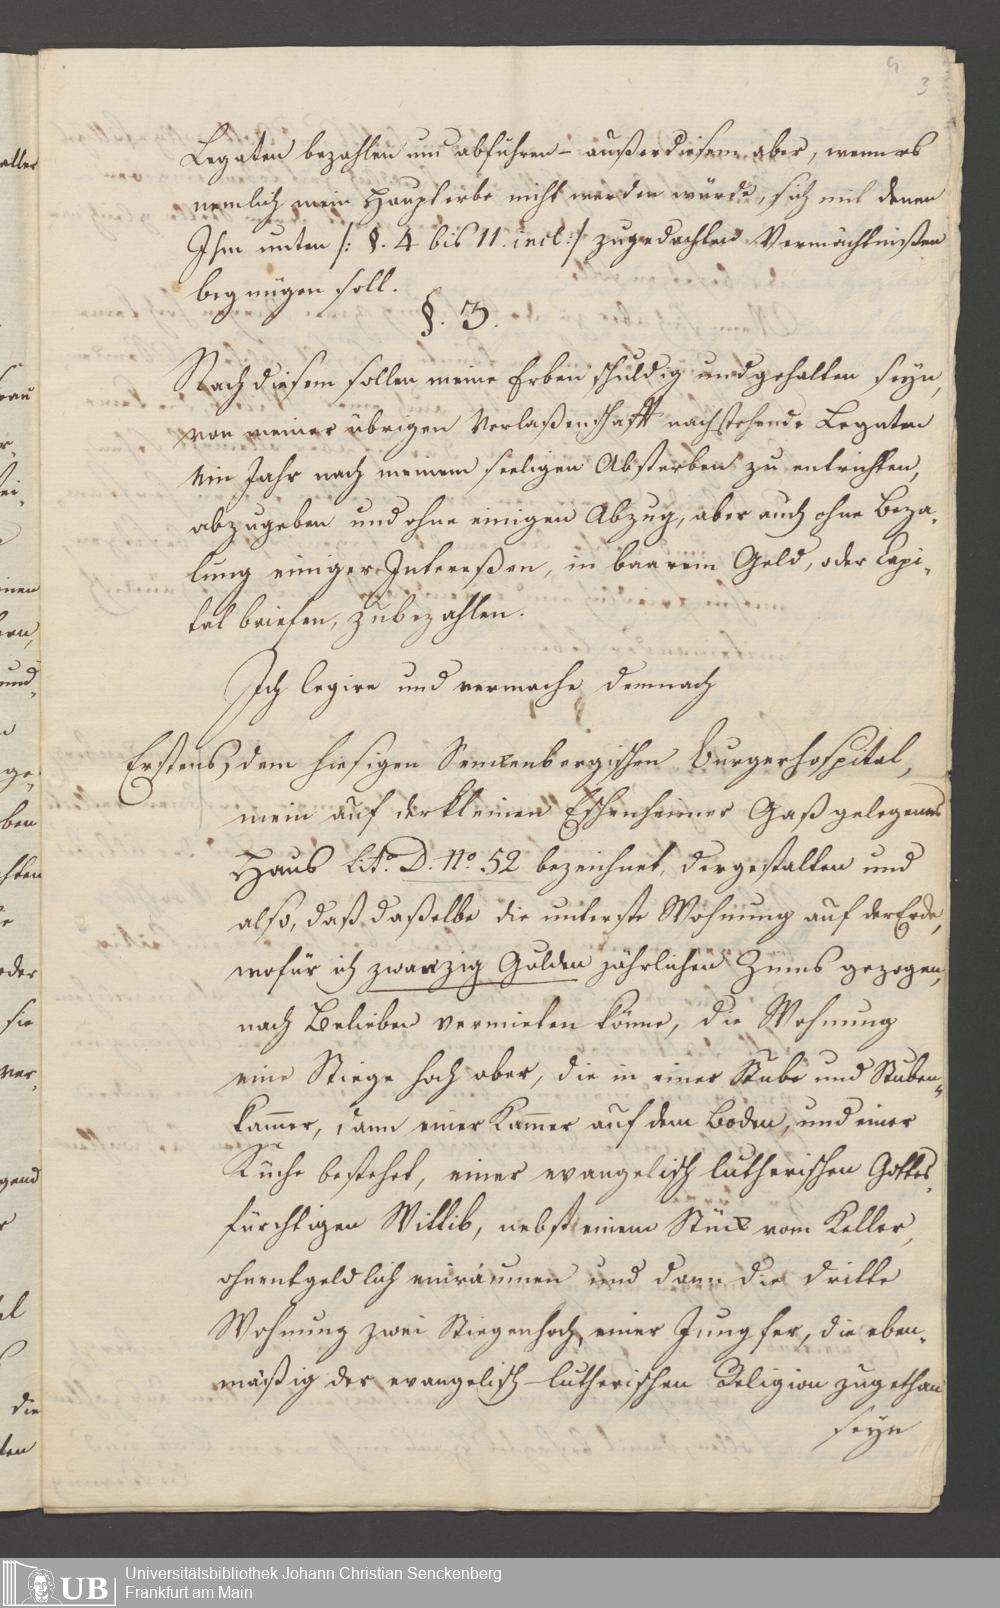 4
3
Legaten bezahlen und abführen – außerdiesem aber, wenn es
nemlich mein Haupterbe nicht werden würde, sich mit denen
Ihm unten /: §. 4 bis 11. incl: / zugedachten Vermächtnißen
begnügen soll.
§. 3.
Nach diesem sollen meine Erben schuldig und gehalten seyn,
von meiner übrigen Verlaßenschafft nachstehende Legaten
ein Jahr nach meinem seeligen Absterben zu entrichten,
abzugeben und ohne einigen Abzug, aber auch ohne Beza-
lung einiger Intereßen, in baarem Geld, oder Capi-
tal briefen, zubezahlen.
Ich legire und vermache demnach
Erstens, dem hiesigen Senckenbergischen Burgerhospital,
mein auf der kleinen Eschenheimer Gaß gelegenes
Haus Lit. D. No. 52 bezeichnet, dergestalten und
also, daß daßelbe die unterste Wohnung auf der Erde,
wofür ich zwanzig Gulden jährlichen Zinns gezogen,
nach Belieben vermieten könne, die Wohnung
eine Stiege hoch aber, die in einer Stube und Stuben-
kammer, dann einer Kammer auf dem Boden, und einer
Küche bestehet, einer evangelisch lutherischen Gottes-
fürchtigen Wittib, nebst einem Stück vom Keller,
ohnentgeldlich einräumen und dann die dritte
Wohnung zwei Stiegenhoch, einer Jungfer, die eben-
mäßig der evangelisch-lutherischen Religion zugethan
seyn
UB
Universitätsbibliothek Johann Christian Senckenberg
Frankfurt am Main